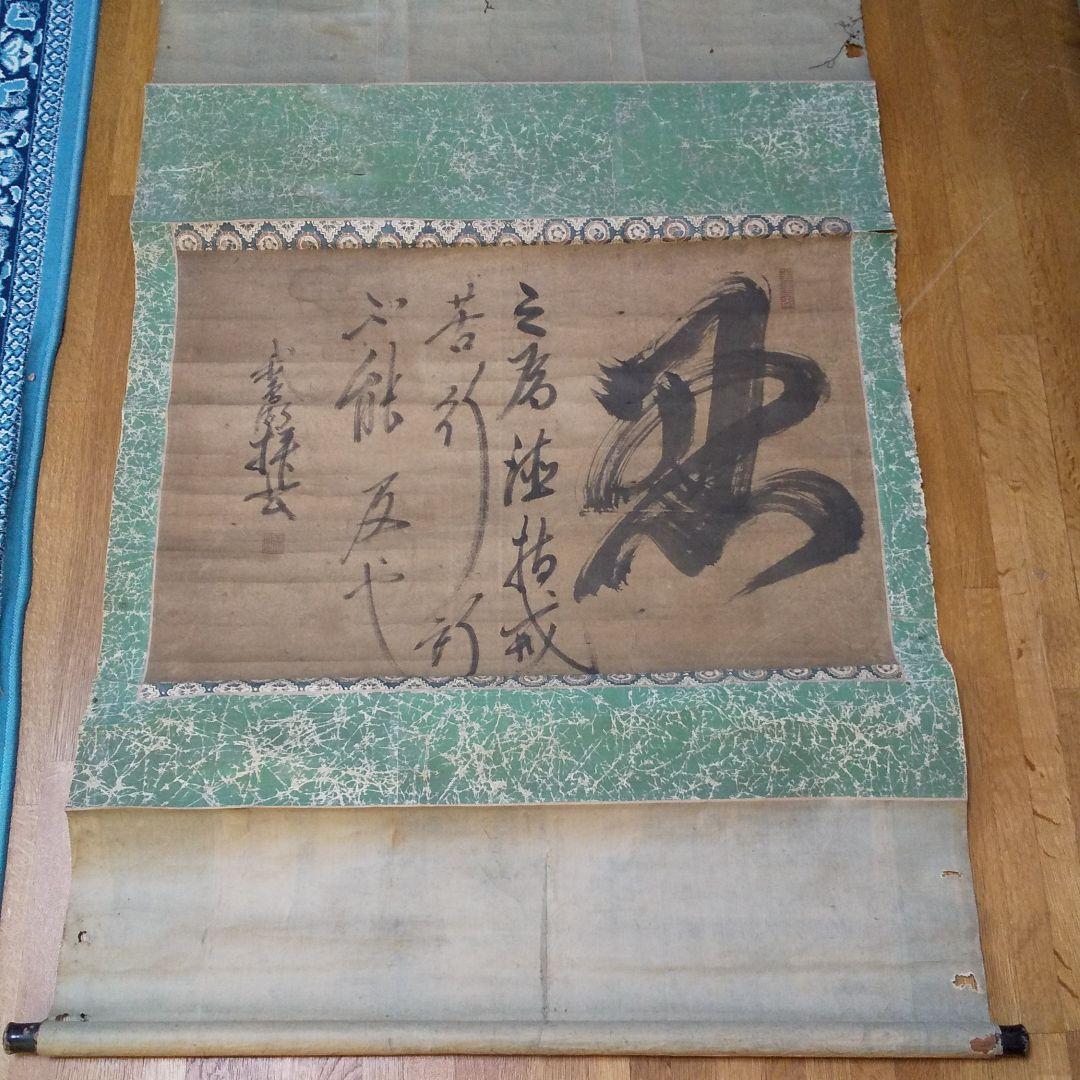 忍
之為德持戒
苦行所
不能及也